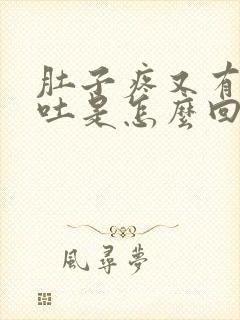 肚子疼又有
吐是怎麼回
風尋夢